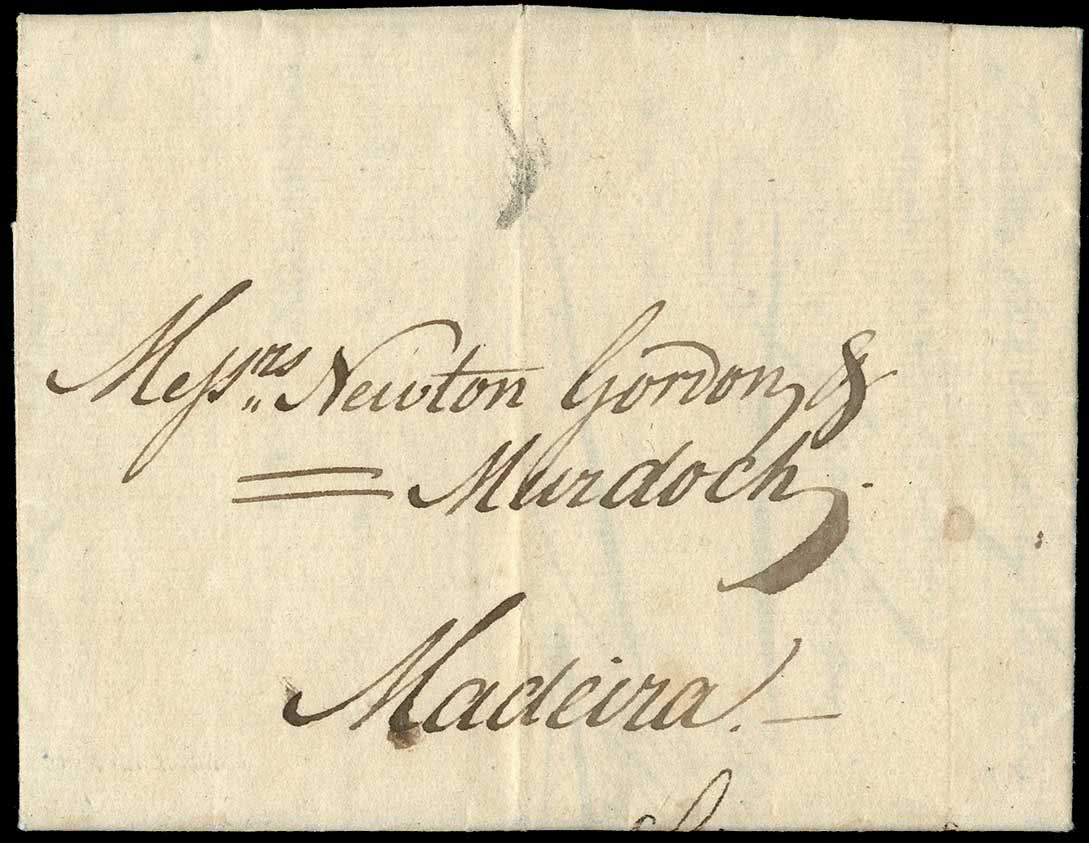 Messrs. Newton Gordon &
Murdoch.
Madeira.